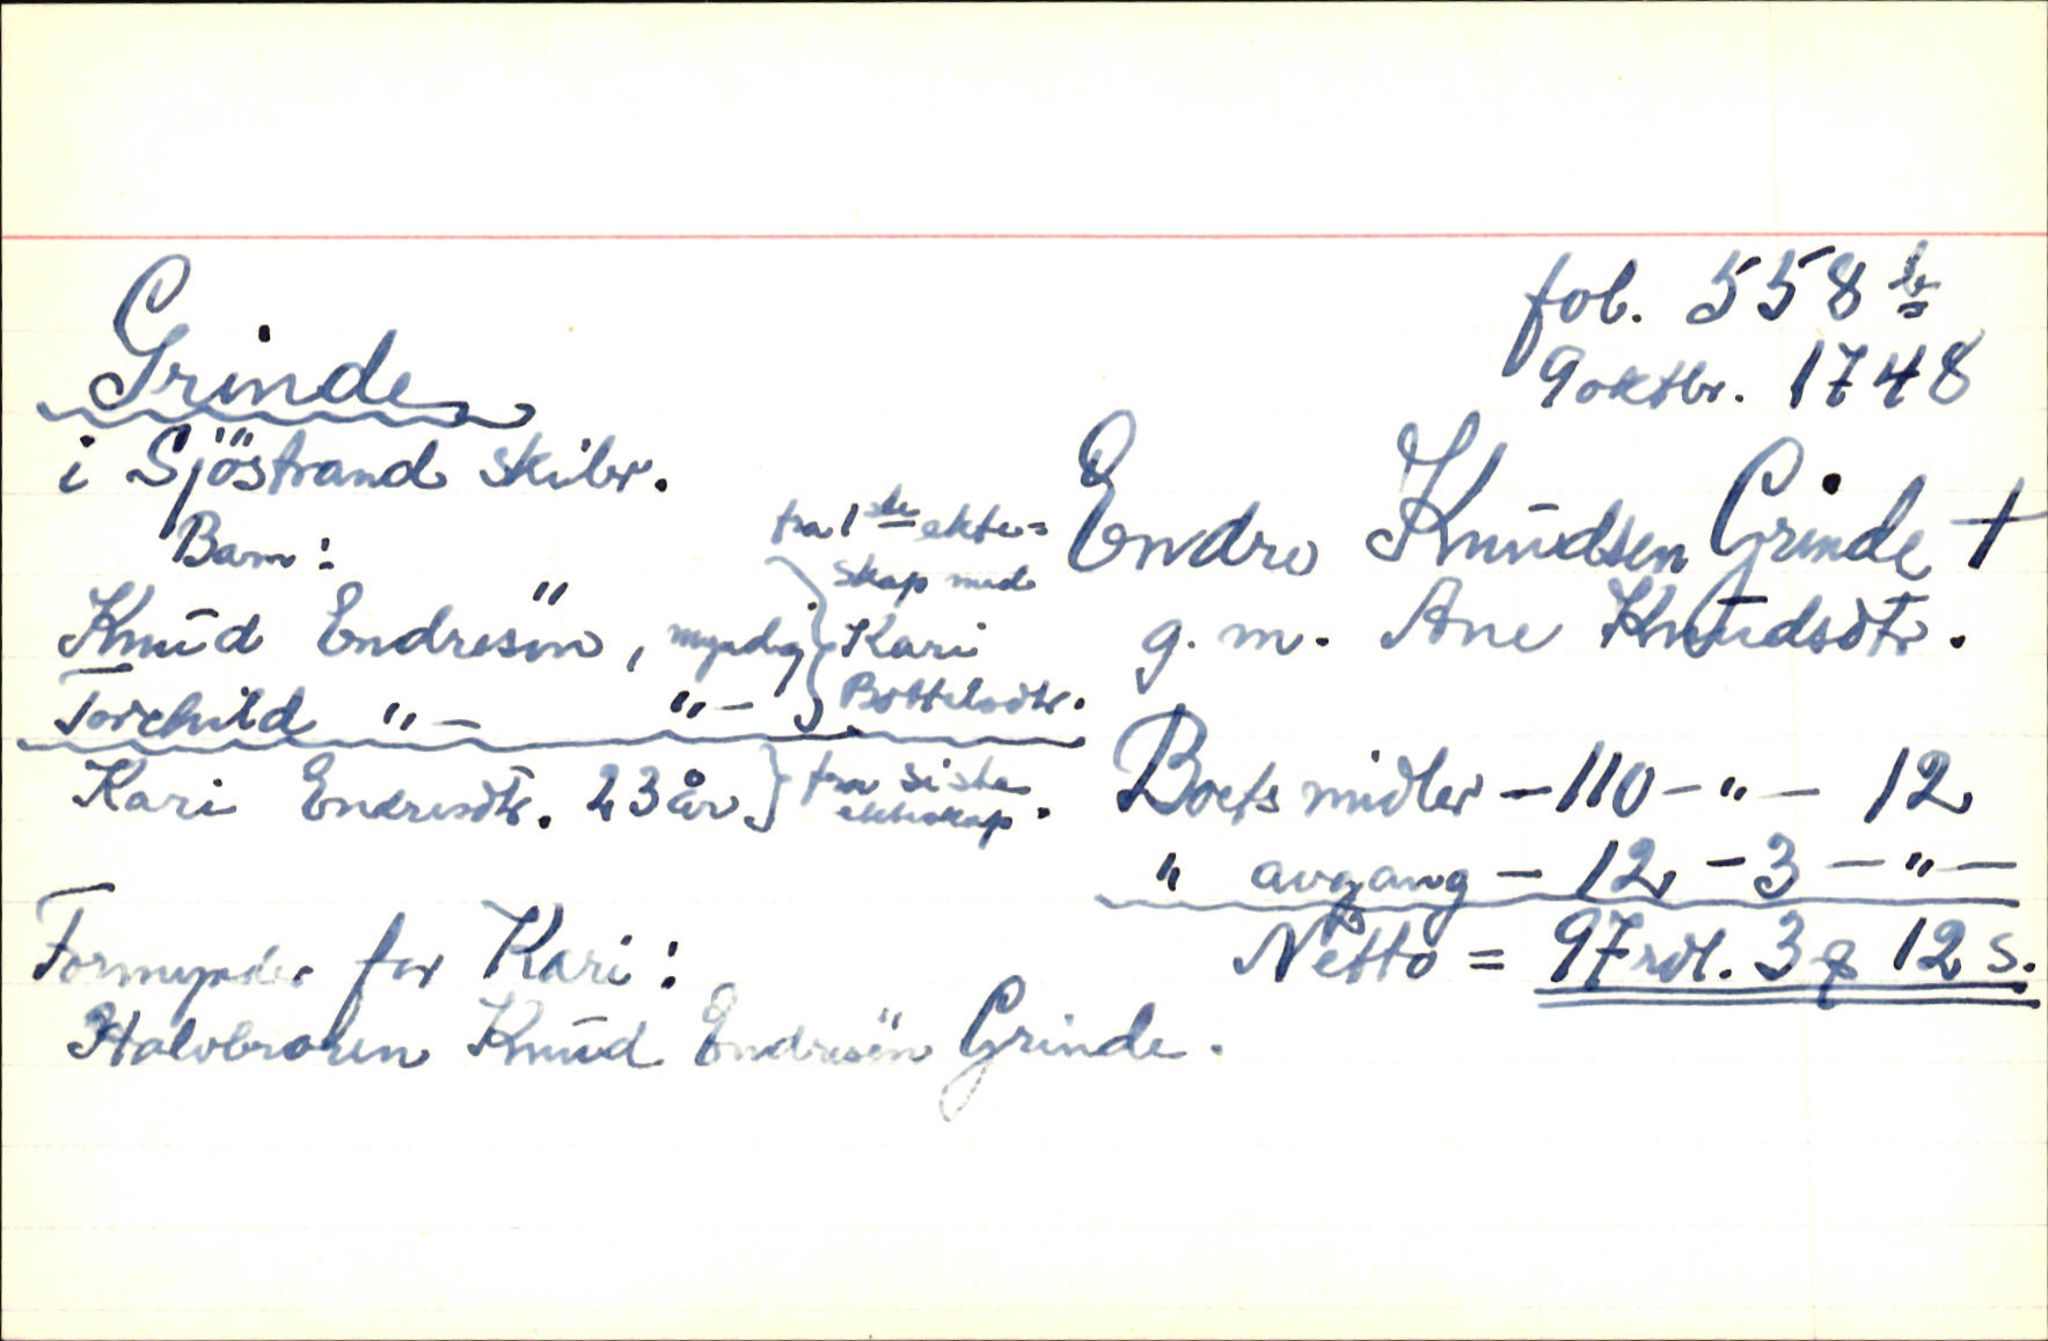 fol. 558 b
9 oktbr. 1748
Grinde
i Sjöstrand skibr.
Endre Knudsen Grinde †
g. m. Ane Knudsdtr.
Barn:
Knud Endresön, myndig
Torchild "- "-
fra 1ste ekte=
skap med
Kari
Bottelsdtr.
Kari Endresdtr. 23 år.
fra siste
ekteskap.
Boets midler - 110 - " - 12
" avgang - 12 - 3 - " -
Netto = 97 rdl. 3 q 12 s.
Formynder for Kari:
Halvbroren Knud Endresön Grinde.